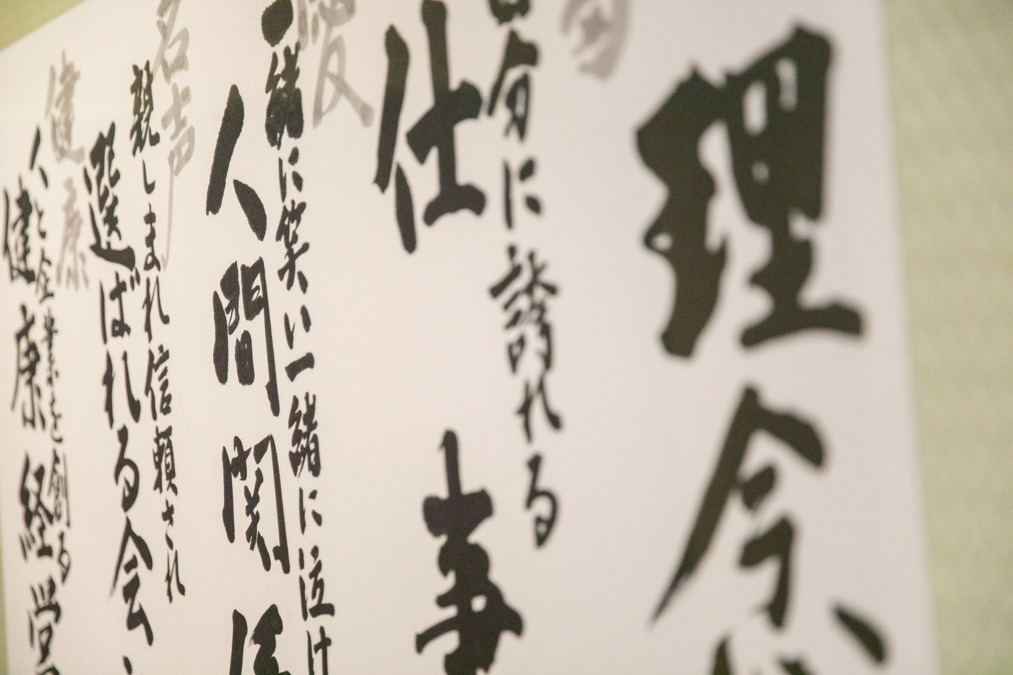 理念
自分に誇れる
仕事
一緒に笑い一緒に泣け
人間関係
名声
親しまれ信頼され
選ばれる会
健康
健康経営